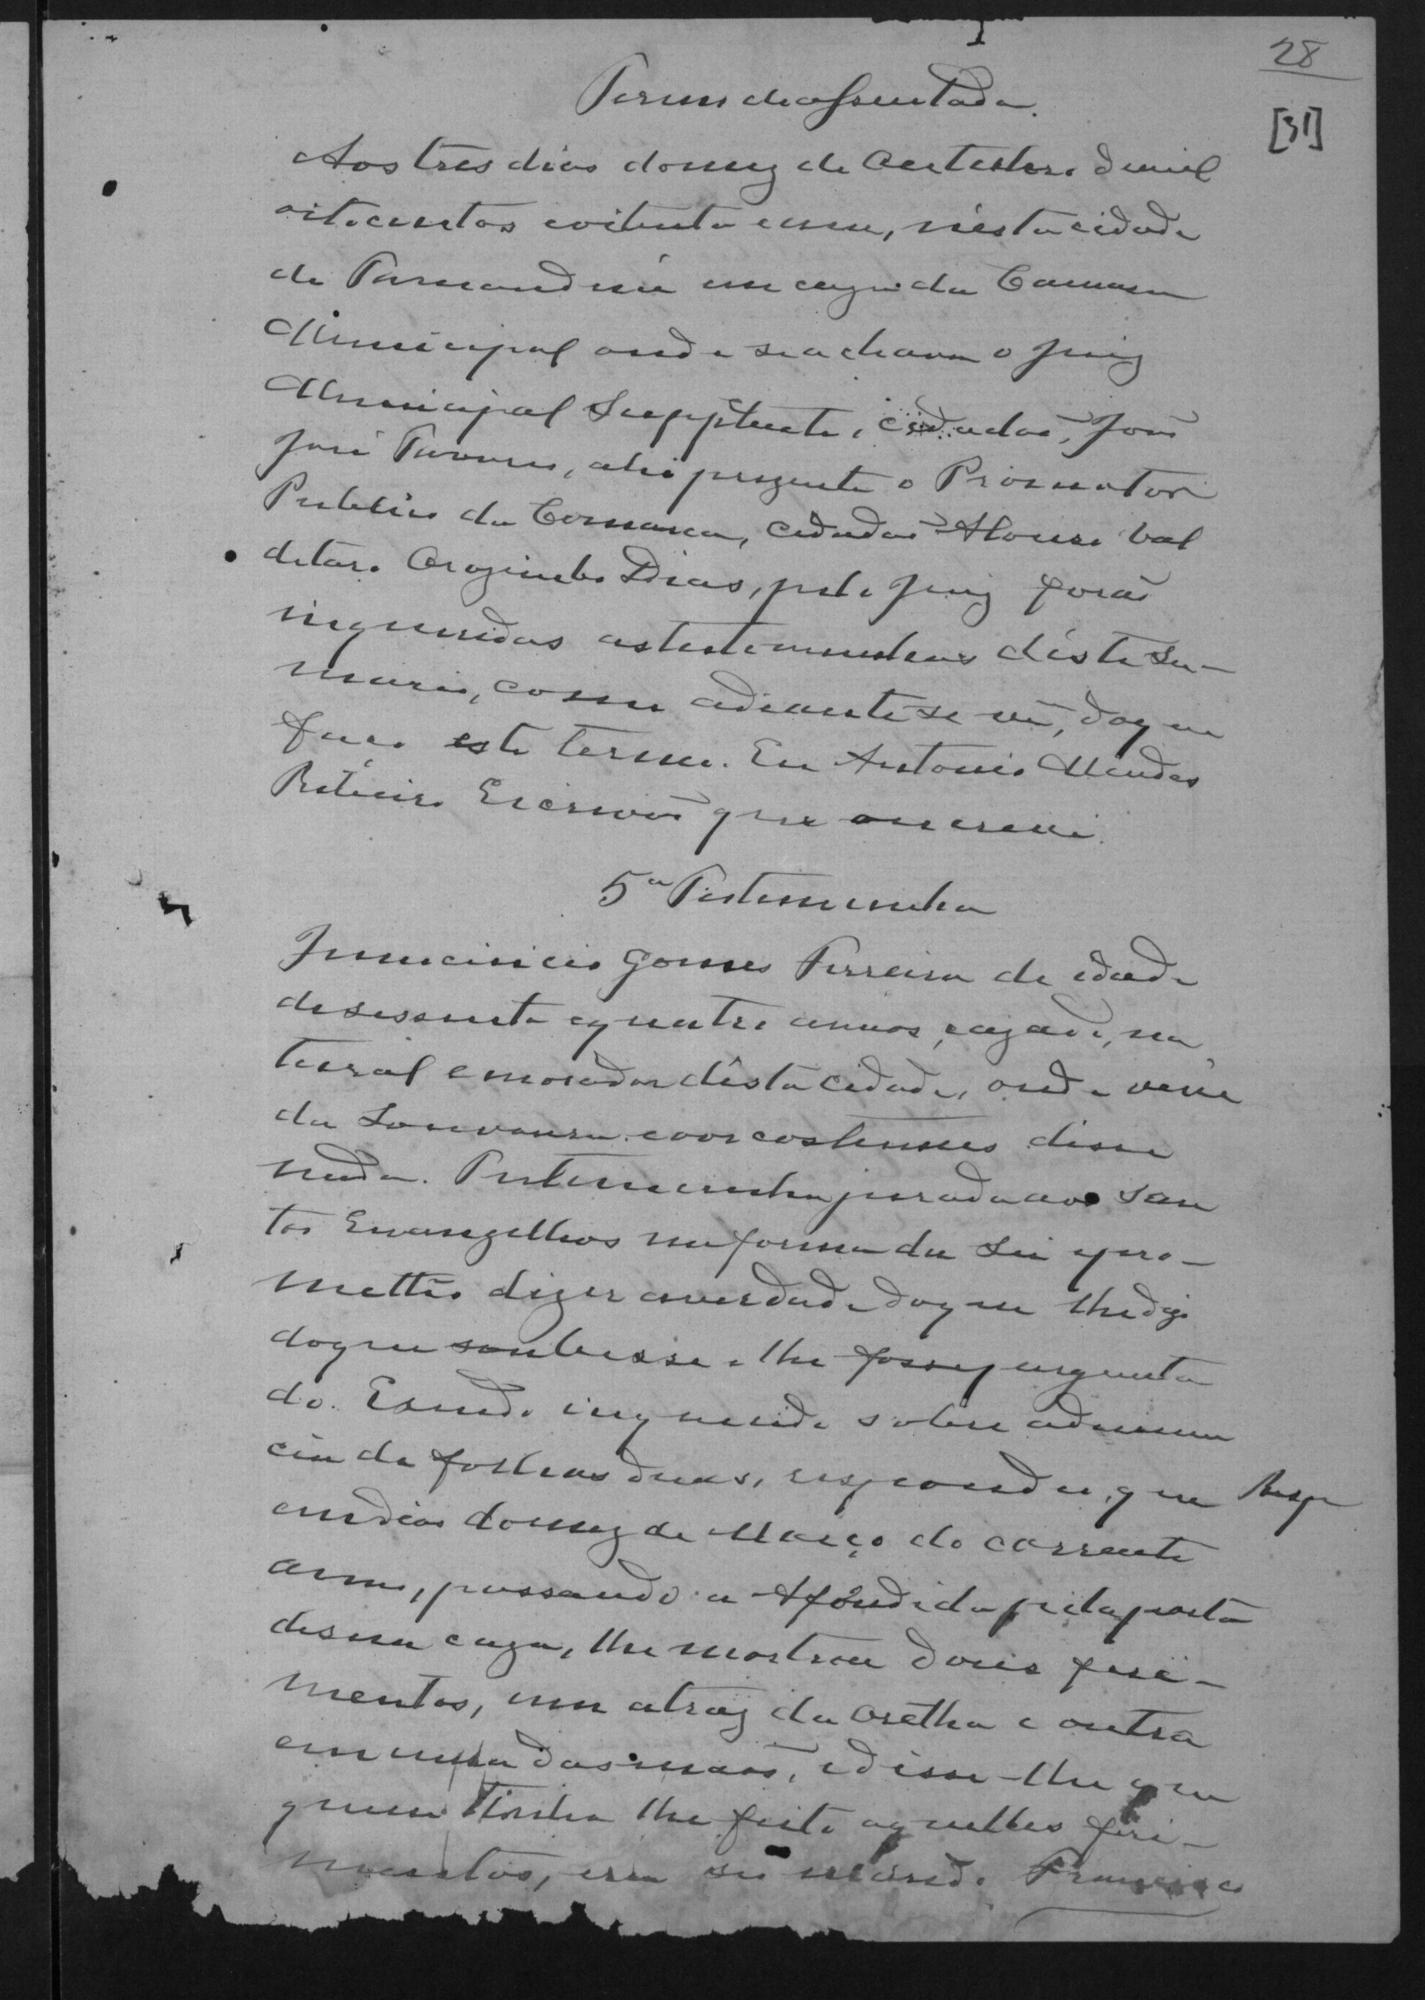 28
[31]
Termo de assentada.
Aos tres dias do mez de Outubro de mil
oitocentos e oitenta e um, n'esta cidade
de em caza da Camara
Municipal onde se achava o Juiz
Municipal Supplente, cidadaõ, Joaõ
José Tavares, ahi prezente o Promotor
Publico da Comarca, cidadaõ Val
detaro Dias, pelo Juiz foraõ
inqueridas as testemunhas déste Su-
mario, como adiante se vê, do que
faço este termo. Eu Antonio Mendes
Ribeiro Escrivaõ que o escrevi.
5ª Testemunha
Innocencio Gomes Ferreira de idade
de sessenta e quatro annos, cazado, na
tural e morador désta cidade, onde vive
da Lavoura e aos costumes disse
nada. Testemunha jurada aos San
tos Evangelhos na forma da Lei e pro-
metteo dizer a verdade do que lhe digo
do que soubesse e lhe fosse pergunta
do. E sendo inquerido sobre a denun
cia de folhas duas, respondeu, que
Resp
em dias do mez de Março do corrente
anno, passando a Offendida pela porta
de sua caza, lhe mostrou dous feri-
mentos, um atraz da orelha e outro
em uma das maõs, e disse-lhe que
quem tinha lhe feito aquelles feri-
mentos, era seu marido Francisco